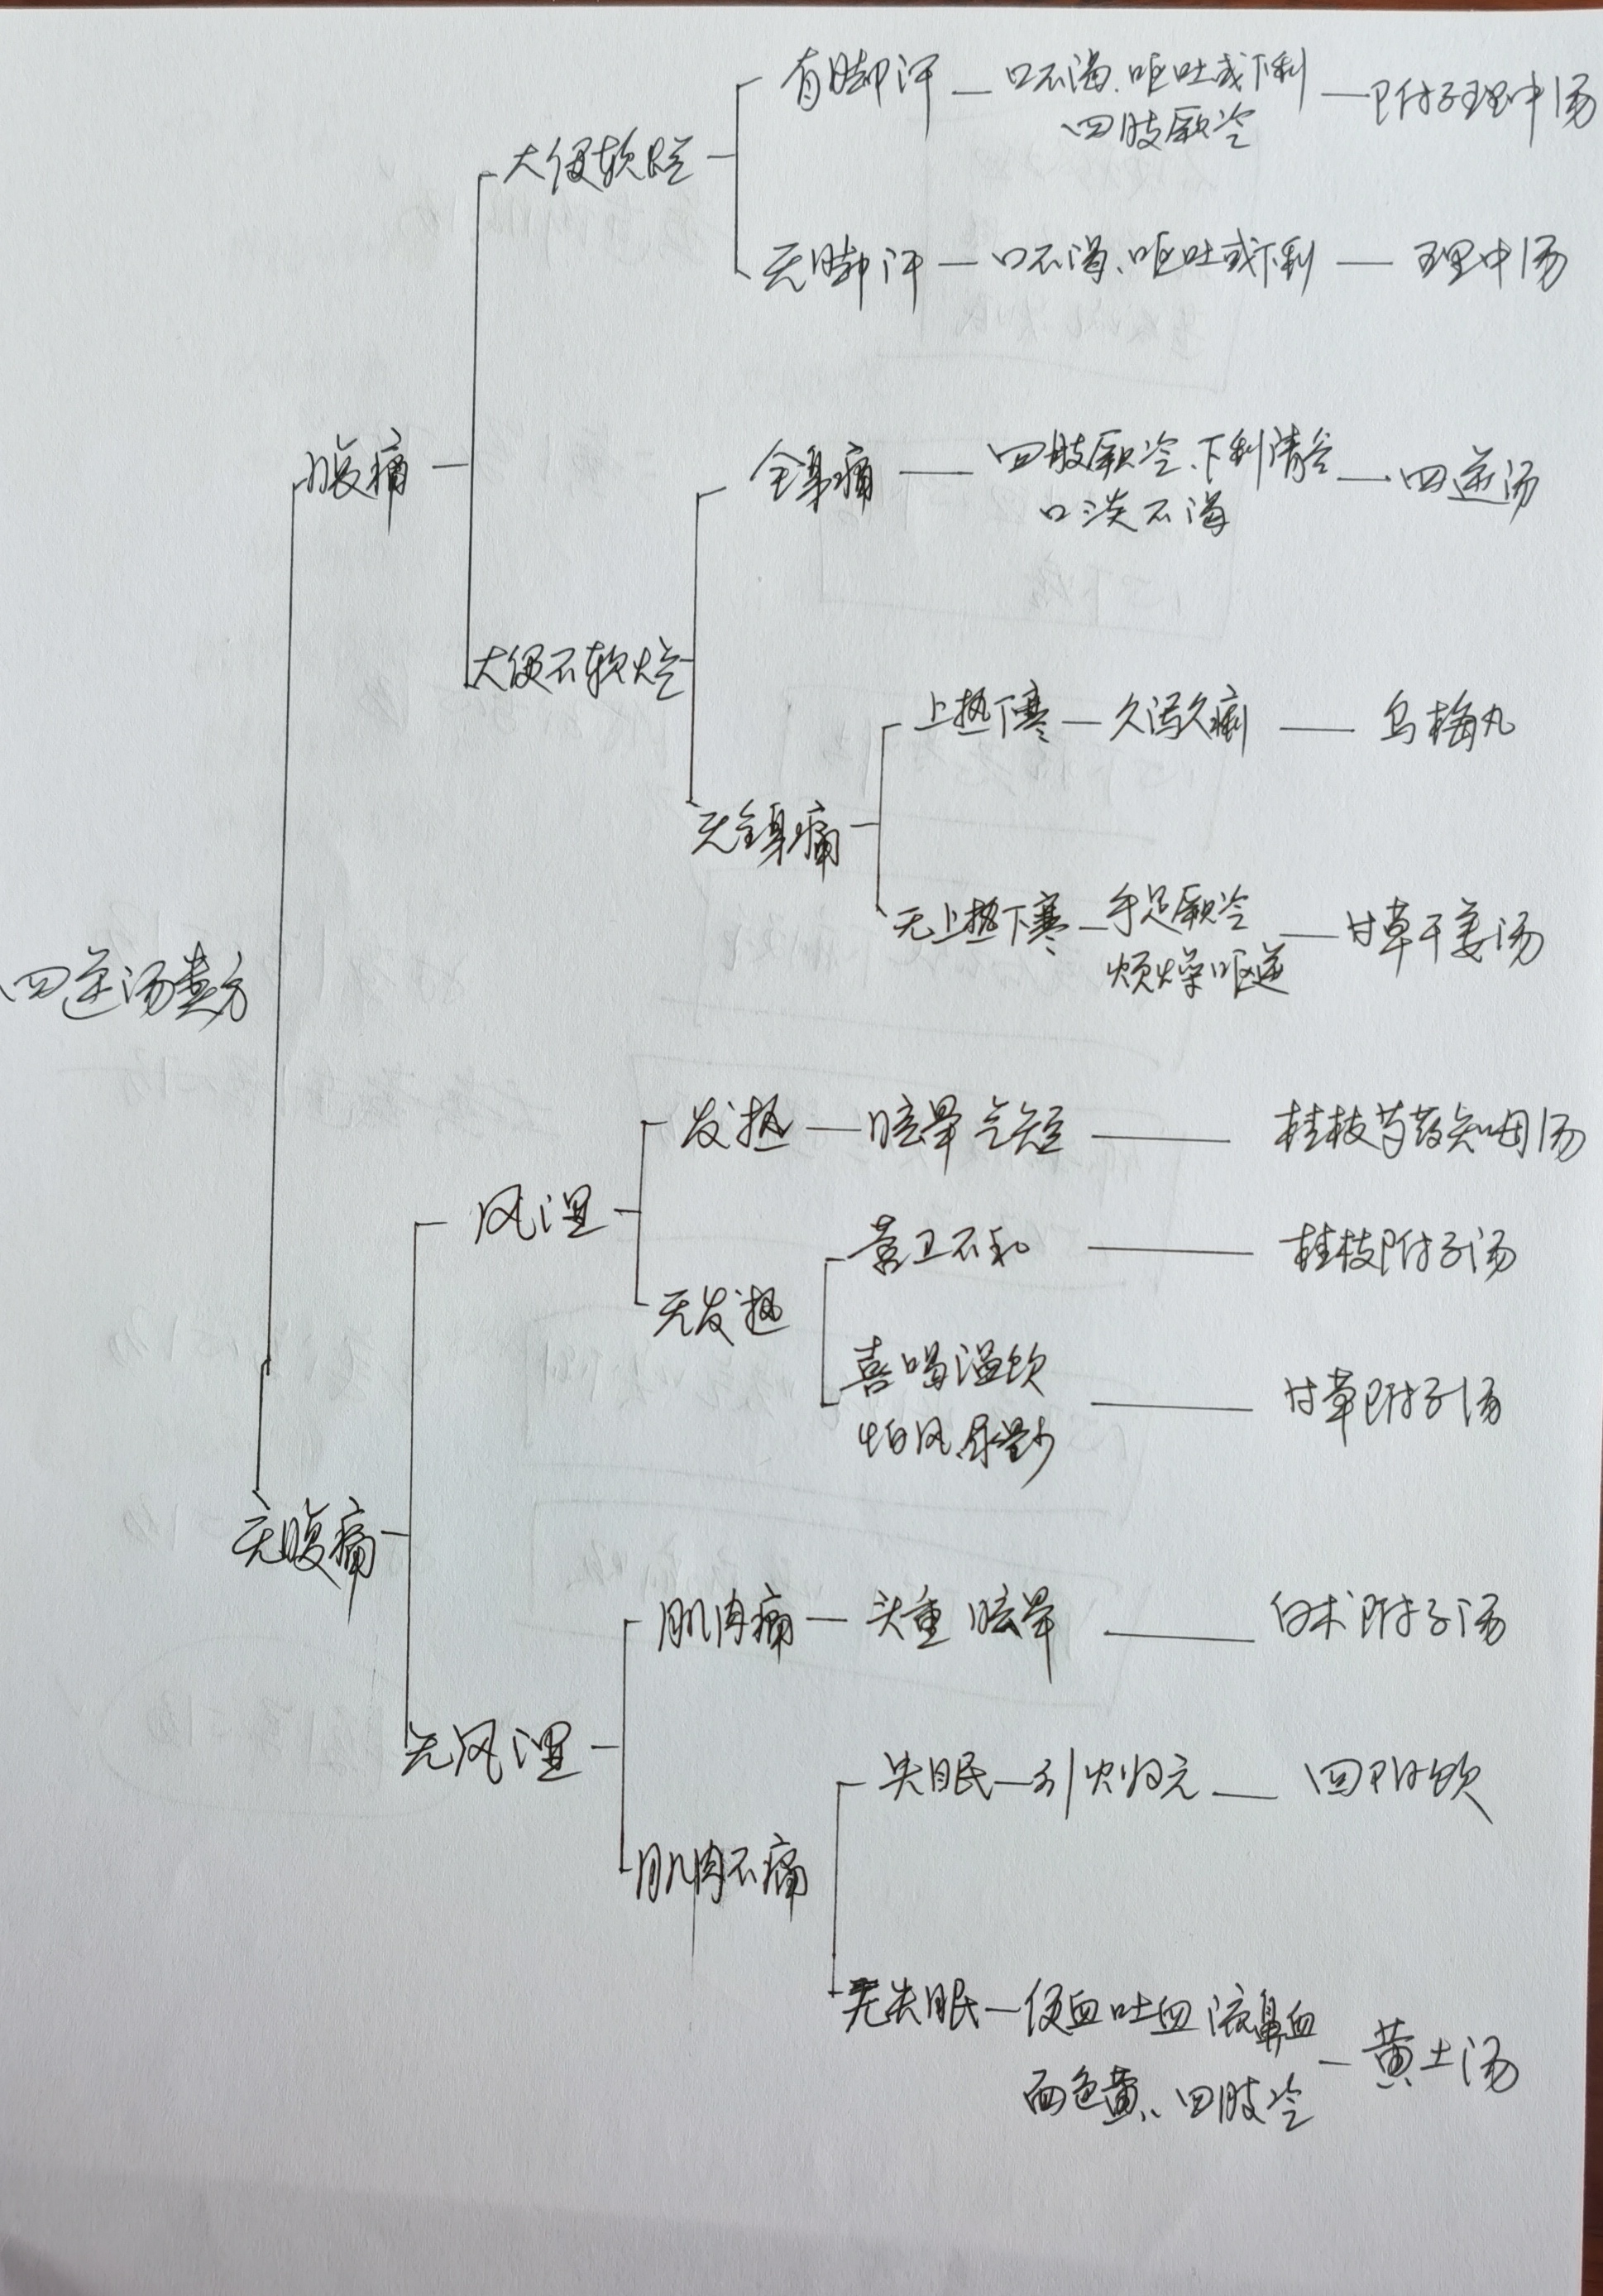 有脚汗 — 口不渴、呕吐或下利 — 附子理中汤
四肢厥冷
大便软烂
无脚汗 — 口不渴、呕吐或下利 — 理中汤
腹痛
全身痛 — 四肢厥冷、下利清谷 — 四逆汤
口淡不渴
大便不软烂
上热下寒 — 久泻久痢 — 乌梅丸
无全身痛
无上热下寒 — 手足厥冷 — 甘草干姜汤
烦燥呕逆
四逆汤类方
发热 — 眩晕 气短 — 桂枝芍药知母汤
风湿
营卫不和 — 桂枝附子汤
无发热
喜喝温饮 — 甘草附子汤
怕风、尿量少
无腹痛
肌肉痛 — 头重 眩晕 — 白术附子汤
无风湿
失眠 — 引火归元 — 四附饮
肌肉不痛
无失眠 — 便血吐血 流鼻血 — 黄土汤
面色黄、四肢冷